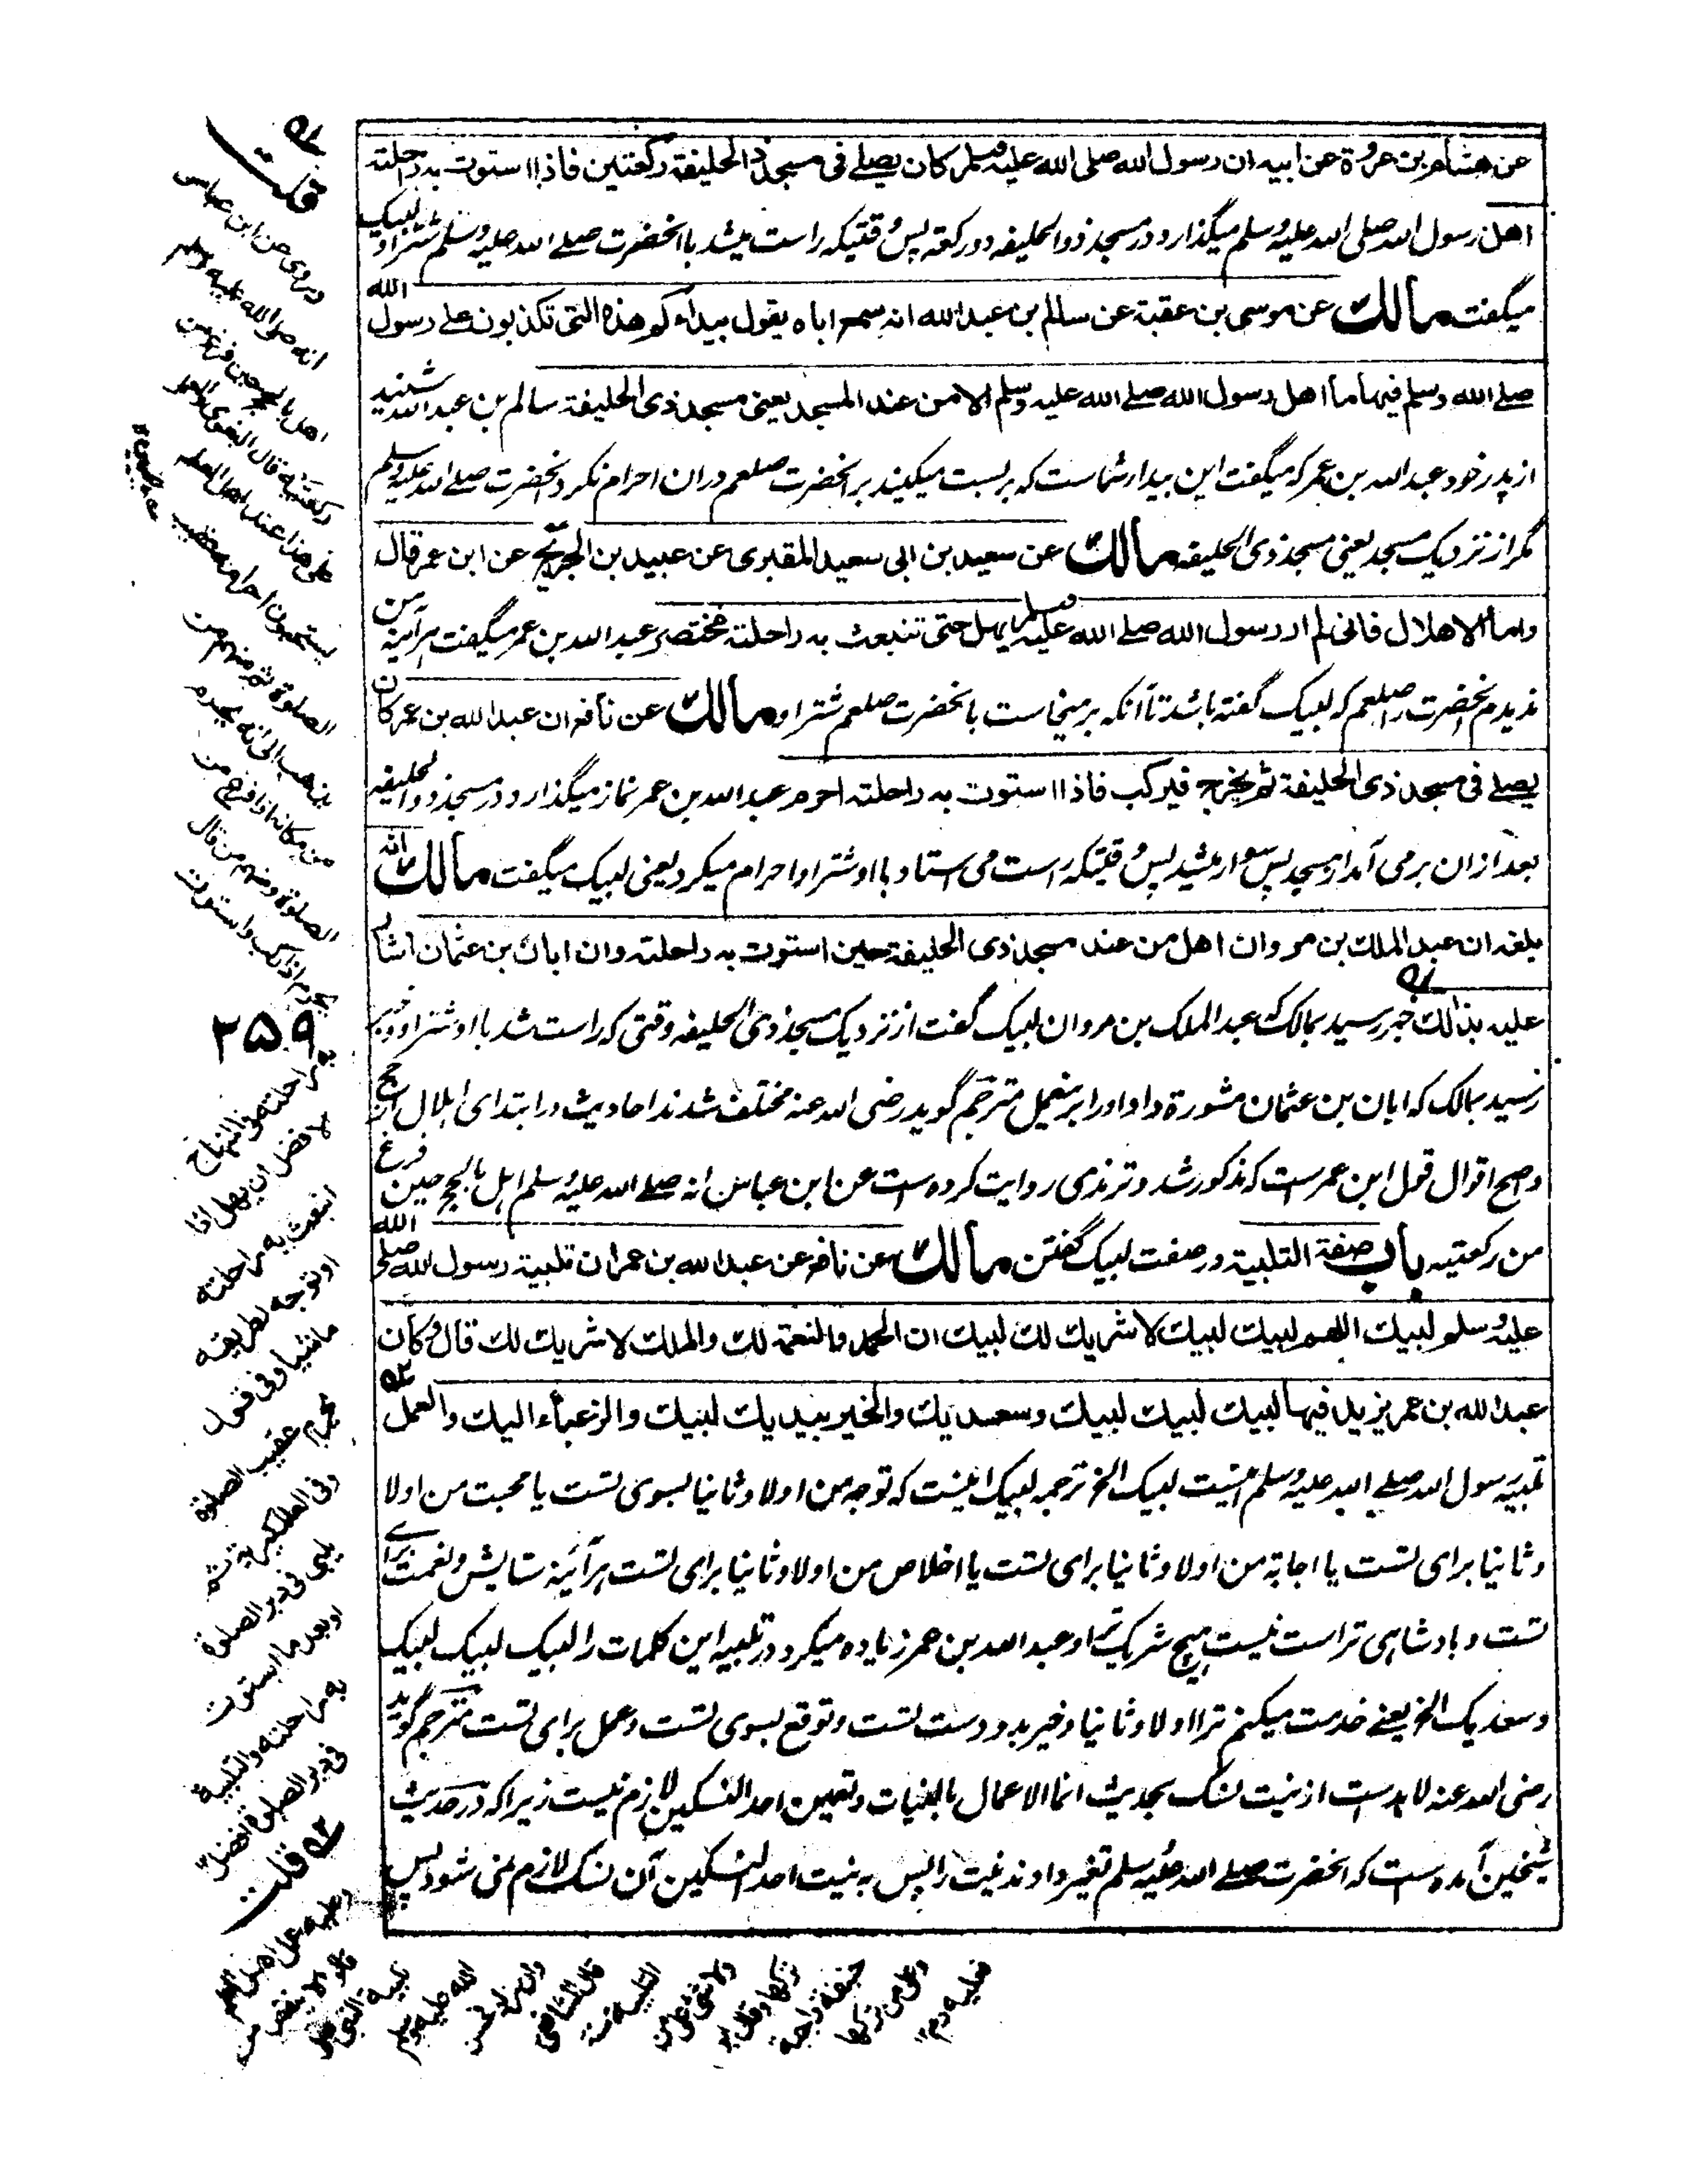 عن هشام بن عروة عن ابيه ان رسول الله صلى الله عليه وسلم كان يصلے فى مسجد ذى الحليفة ركعتين فاذا استوت به راحلته
اهل رسول الله صلى الله عليه وسلم ميگذارد در مسجد ذو الحليفه دو ركعة پس وقتيكه راست ميشد با انحضرت صلے الله عليه وسلم شتر او لبيك
ميگفت مالك عن موسى بن عقبة عن سالم بن عبد الله انه سمع اباه يقول بيداءكم هذه التى تكذبون على رسول الله
صلے الله وسلم فيها ما اهل رسول الله صلے الله عليه وسلم الا من عند المسجد يعنى مسجد ذى الحليفة سالم بن عبد الله شنيد
از پدر خود عبد الله بن عمر كه ميگفت اين بيدار شماست كه بر بست ميكنيد بر انحضرت صلعم در ان احرام نكرد انحضرت صلے الله عليه وسلم
مگر از نزديك مسجد يعنى مسجد ذى الحليفه مالك عن سعيد بن ابى سعيد المقبرى عن عبيد بن الجريج عن ابن عمر قال
واما الاهلال فانى لم ار رسول الله صلے الله عليه وسلم يهل حتى تنبعث به راحلته مختصر عبد الله بن عمر ميگفت هرآئينه من
نديدم انحضرت را صلعم كه لبيك گفته باشد تا آنكه بر ميخاست با انحضرت صلعم شتر او مالك عن نافع ان عبد الله بن عمر كان
يصلے فى مسجد ذى الحليفة ثم يخرج فيركب فاذا استوت به راحلته احرم عبد الله بن عمر نماز ميگذارد در مسجد ذو الحليفه
بعد ازان بر مى آمد از مسجد پس سوار ميشد پس وقتيكه راست مى استاد با او شتر او احرام ميكرد يعنى لبيك ميگفت مالك انه
بلغه ان عبد الملك بن مروان اهل من عند مسجد ذى الحليفة حين استوت به راحلته وان ابان بن عثمان اشار
عليه بذالك خبر رسيد بمالك كه عبد الملك بن مروان لبيك گفت از نزديك مسجد ذى الحليفه وقتى كه راست شد با او شتر او و خبر
رسيد بمالك كه ابان بن عثمان مشورة داد او را بر ينعمل مترجم گويد رضى الله عنه مختلف شدند احاديث در ابتداى اهلال از حج
و اصح اقوال قول ابن عمر ست كه مذكور شد و ترمذى روايت كرده است عن ابن عباس انه صلے الله عليه وسلم اهل بالحج حين فرغ
من ركعتيه باب صفة التلبية در صفت لبيك گفتن مالك عن نافع عن عبد الله بن عمر ان تلبية رسول الله صلى الله
عليه وسلم لبيك اللهم لبيك لبيك لا شريك لك لبيك ان الحمد والنعمة لك والملك لا شريك لك قال وكان
عبد الله بن عمر يزيد فيها لبيك لبيك لبيك وسعديك والخير بيديك لبيك والرغباء اليك والعمل
تلبيه رسول الله صلے الله عليه وسلم اينست لبيك الخ ترجمه لبيك اينست كه توجه من اولا و ثانيا بسوى تست يا محبت من اولا
و ثانيا براى تست يا اجابة من اولا و ثانيا براى تست يا اخلاص من اولا و ثانيا براى تست هرآئينه ستايش و نعمت براے
تست و بادشاهى تراست نيست هيچ شريك ترا و عبد الله بن عمر زياده ميكرد در تلبيه اين كلمات را لبيك لبيك لبيك
و سعديك الخ يعنے خدمت ميكنم ترا اولا و ثانيا و خير بدو دست تست و توقع بسوى تست و عمل براى تست مترجم گويد
رضى الله عنه لابد ست از نيت نسك بحديث انما الاعمال بالنيات و تعيين احد النسكين لازم نيست زيراكه در حديث
شيخين آمده است كه انحضرت صلے الله عليه وسلم تغير دادند نيت را پس به نيت احد النسكين آن نسك لازم نمى شود پس
قلت
وروى عن ابن عباس
انه صلى الله عليه وسلم
اهل بالحج حين فرغ من
ركعتيه قال البغوى والعمل
على هذا عند اهل العلم
يستحبون احرامه عقيب
الصلوة ثم منهم من
يذهب الى انه يحرم
من مكانه اذا فرغ من
الصلوة ومنهم من قال
يحرم اذا ركب واستوت
۳۵۹
به راحلته وفى المنهاج
الافضل ان يهل اذا
انبعث به راحلته
او توجه لطريقه
ماشيا وفى قول
يحرم عقيب الصلوة
وفى العالمگيرية ثم
يلبى فى دبر الصلوة
او بعد ما استوت
به راحلته والتلبية
فى دبر الصلوة افضل
قلت
وعليه عمل اهل العلم
تلبية النبى صلى
الله عليه وسلم
قال الشافعى
التلبية سنة
ولا شئ على من
تركها وقال ابو
حنيفة واجبة
وعلى من تركها
فعليه دم